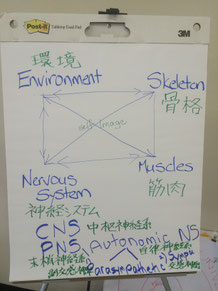 Post-it
3M
環境
Environment
Skeleton
骨格
self Image
Nervous
System
Muscles
筋肉
神経システム
CNS 中枢神経系
PNS Autonomic NS
末梢神経系
自律神経系
Parasympathetic
Symp
副交感神経
交感神経